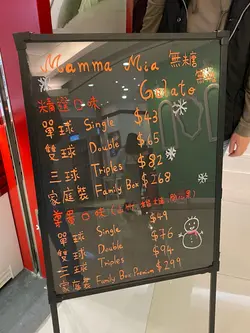 Mamma Mia 無糖
Gelato
精選口味
單球 Single $43
雙球 Double $65
三球 Triples $82
家庭裝 Family Box $268
尊貴口味
單球 Single $49
雙球 Double $76
三球 Triples $94
家庭裝 Family Box Premium $299